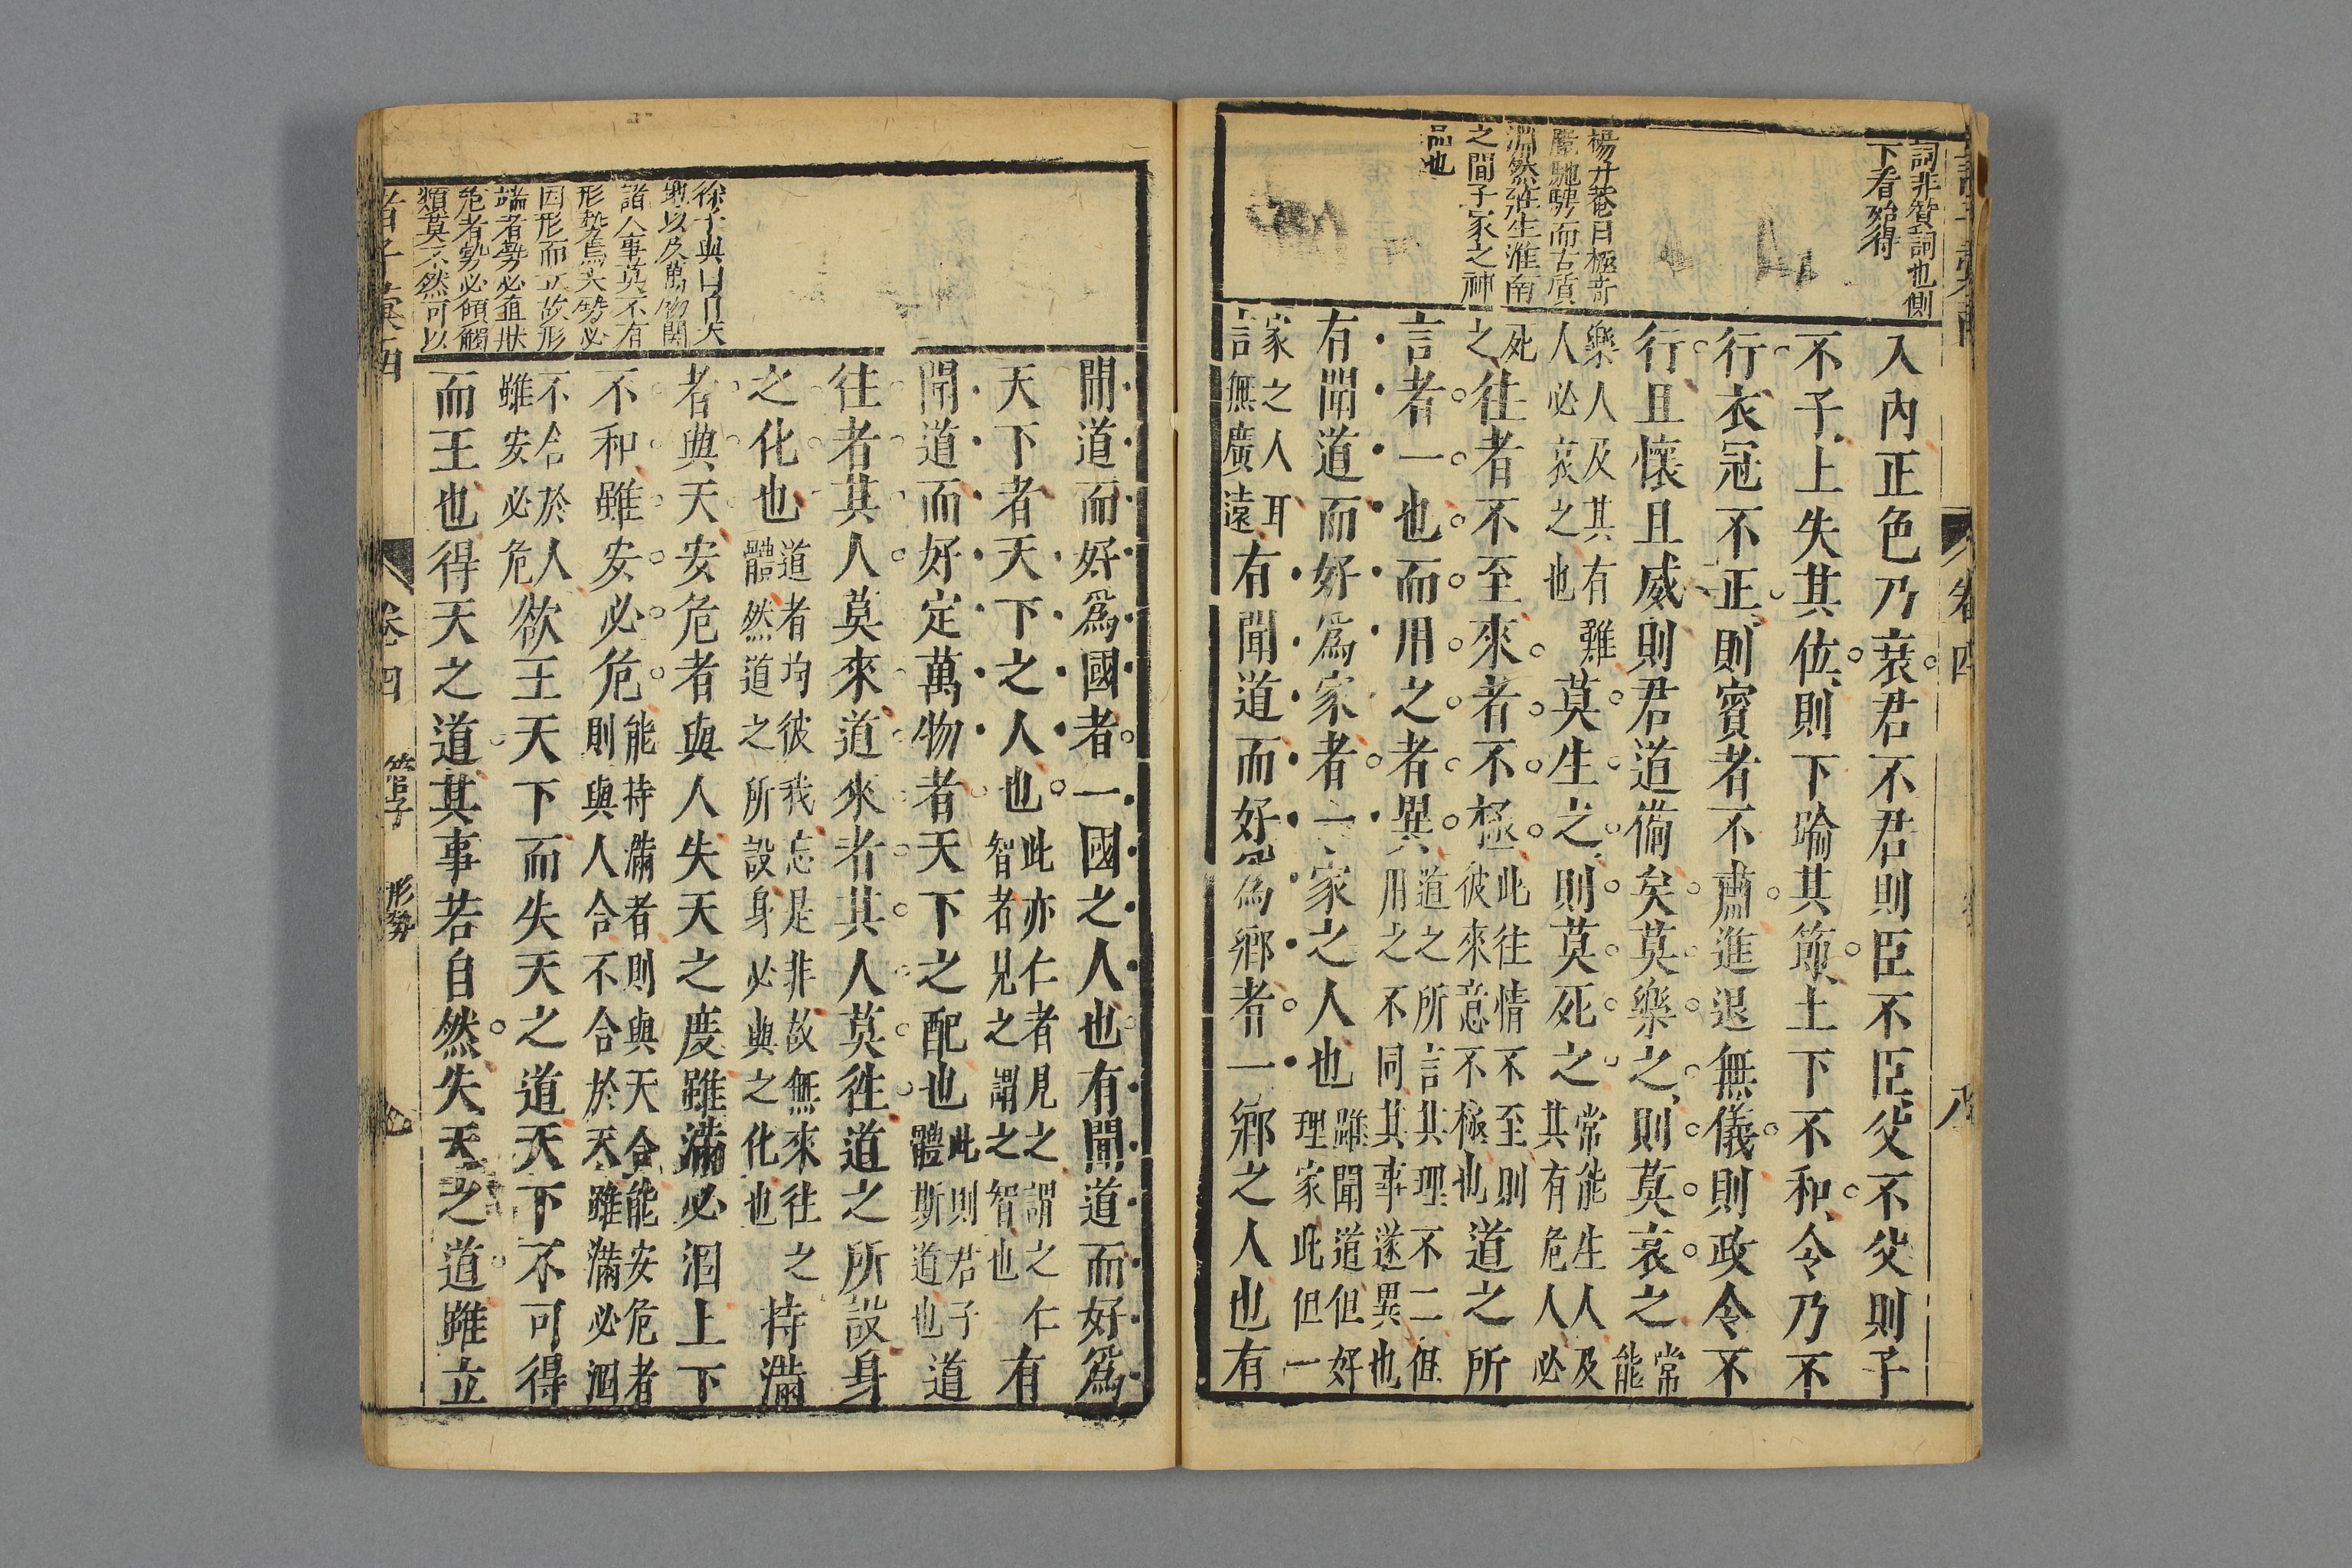 詞非贊詞也側
下看始得
楊升菴曰極奇
麗馳騁而古質
淵然莊生淮南
之間子家之神
品也
入內正色乃衰君不君則臣不臣父不父則子
不子上失其位則下踰其節上下不和令乃不
行衣冠不正則賓者不肅進退無儀則政令不
行且懷且威則君道備矣莫樂之則莫哀之常能
樂人及其有難人必哀之也莫生之則莫死之常能生人及其有危人人必
死之往者不至來者不極此往情不至則彼來意不極也道之所
言者一也而用之者異道之所言其理不二但用之不同其事遂異也
有聞道而好爲家者一家之人也雖聞道但好理家此但一
家之人耳言無廣遠有聞道而好爲鄉者一鄉之人也有
卷四
八
聞道而好爲國者一國之人也有聞道而好爲
天下者天下之人也此亦仁者見之謂之仁智者見之謂之智也有
聞道而好定萬物者天下之配也此則君子體斯道也道
往者其人莫來道來者其人莫往道之所設身
之化也道者均彼我忘是非故無來往之體然道之所設身必與之化也持滿
者與天安危者與人失天之度雖滿必涸上下
不和雖安必危能持滿者則與天合能安危者則與人合不合於天雖滿必涸
不合於人雖安必危欲王天下而失天之道天下不可得
而王也得天之道其事若自然失天之道雖立
徐子與曰自天
地以及萬物關
諸人事莫不有
形勢焉夫勢必
因形而立故形
端者勢必直狀
危者勢必傾觸
類莫不然可以
卷四
管子
形勢